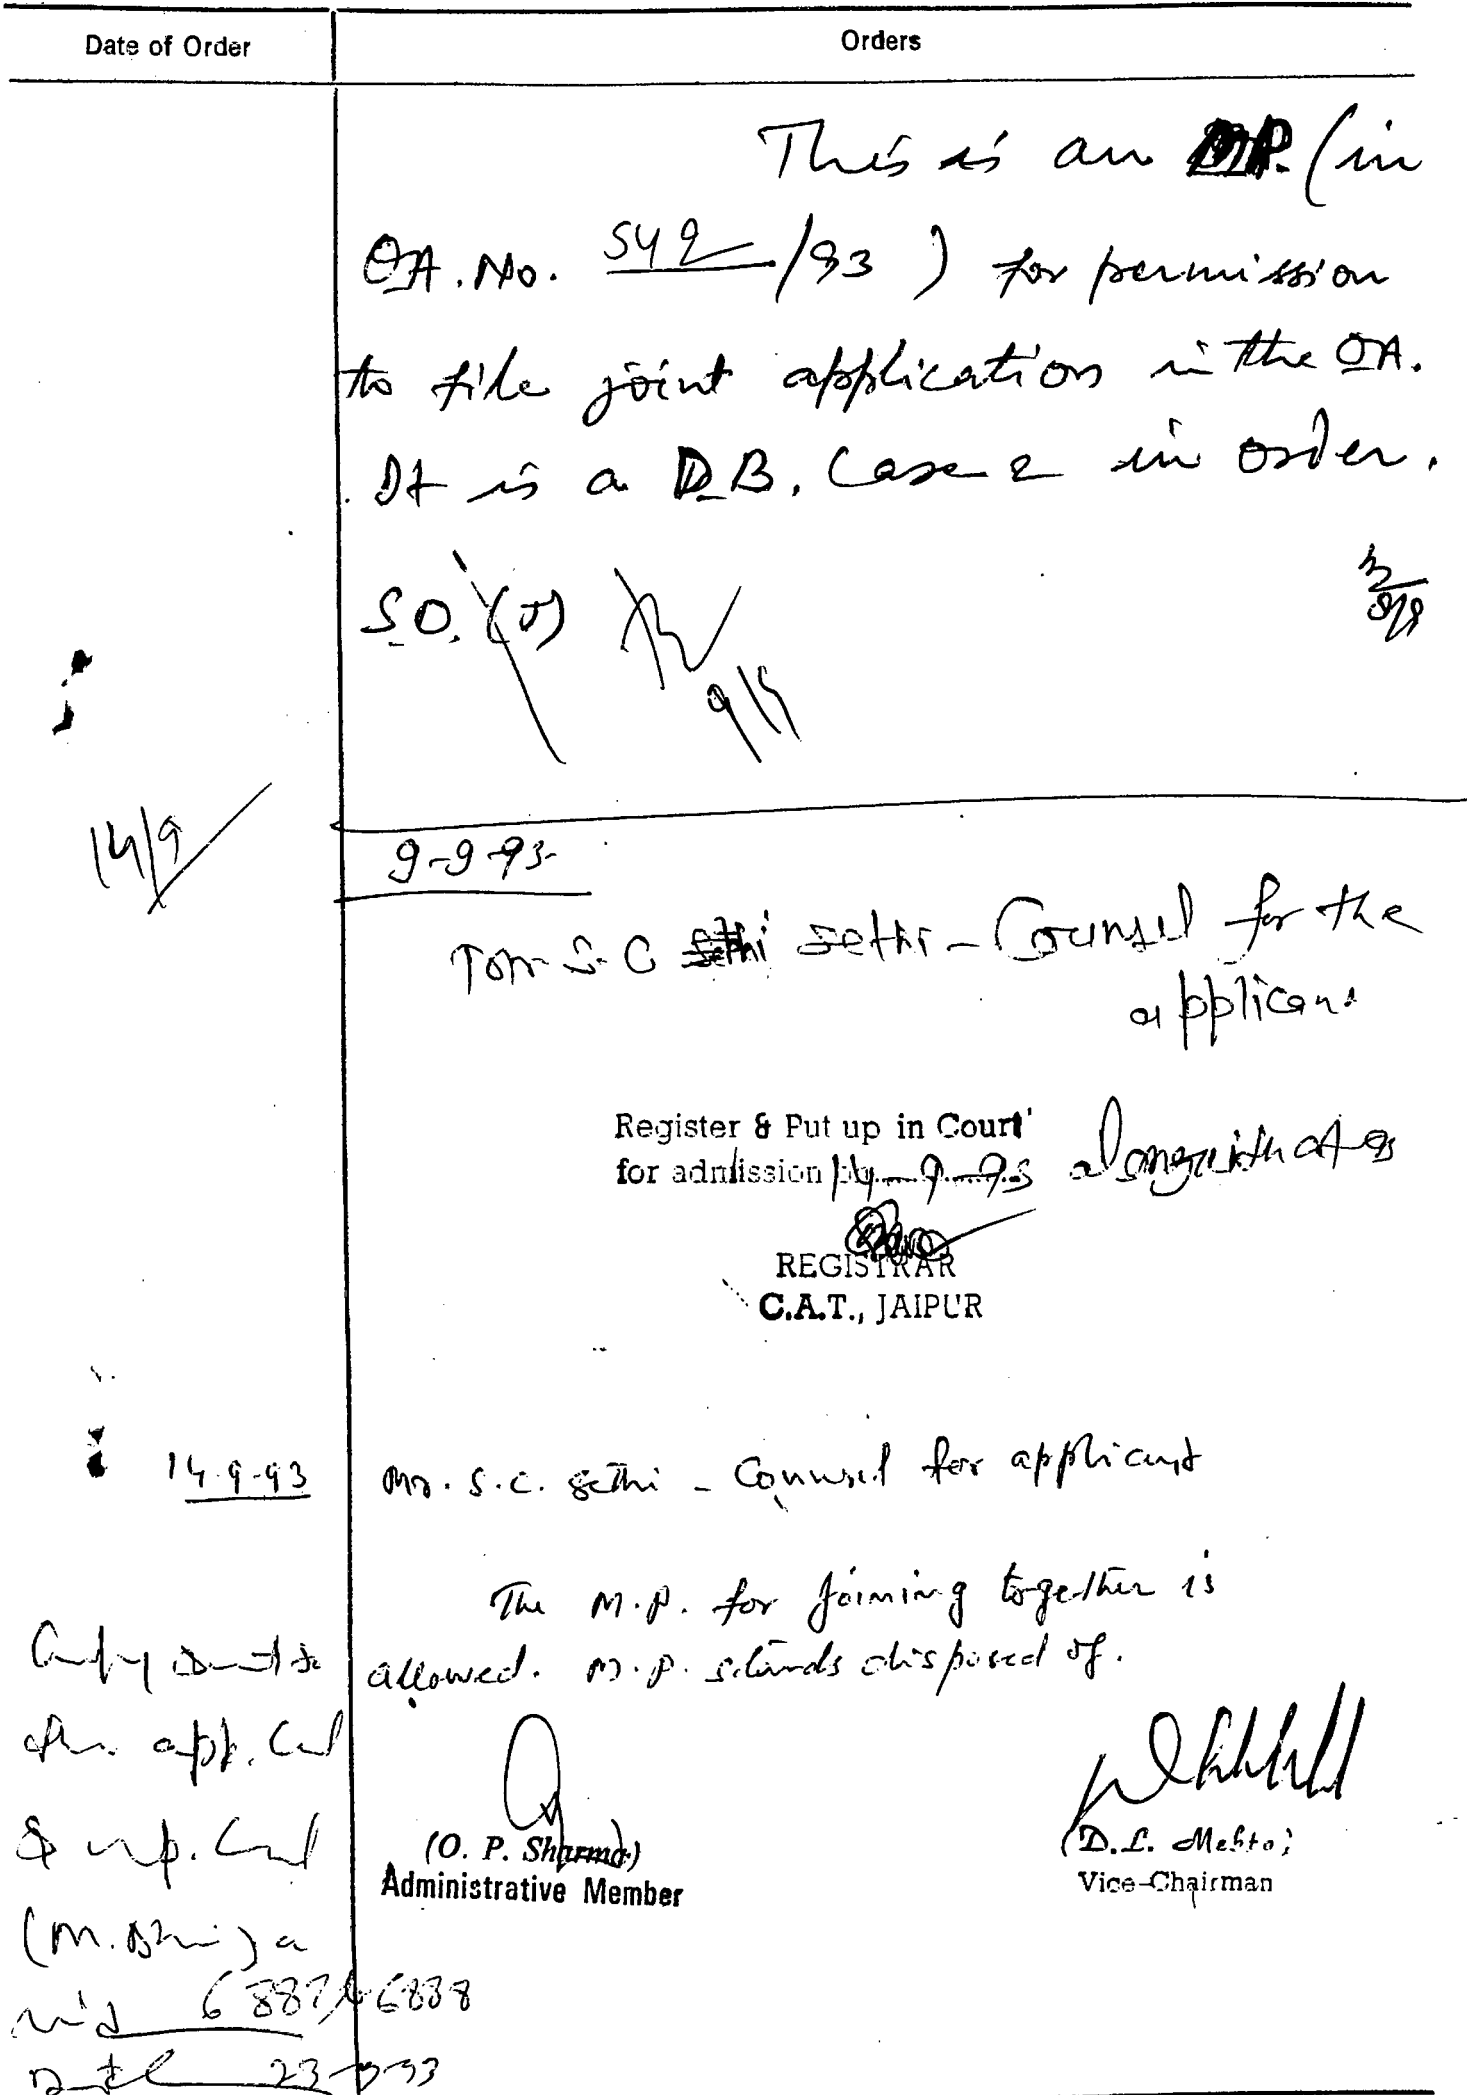 Date of Order
Orders
This is an MP. (in
OA. No. 542/93 ) for permission
to file joint application in the OA.
It is a D.B. Case & in order.
S.O. (J)
9/9
14/9
9-9-93
S. C Sethi - Counsel for the
applicant
Register & Put up in Court
for admission 14-9-93 alongwith OA
REGISTRAR
C.A.T., JAIPUR
14-9-93
Mr. S.C. Sethi - Counsel for applicant
The M.P. for joining together is
allowed. M.P. stands disposed of.
(O. P. Sharma)
Administrative Member
(D.L. Mehta)
Vice-Chairman
Copy sent to
the app.
& rep.
6887 to 6888